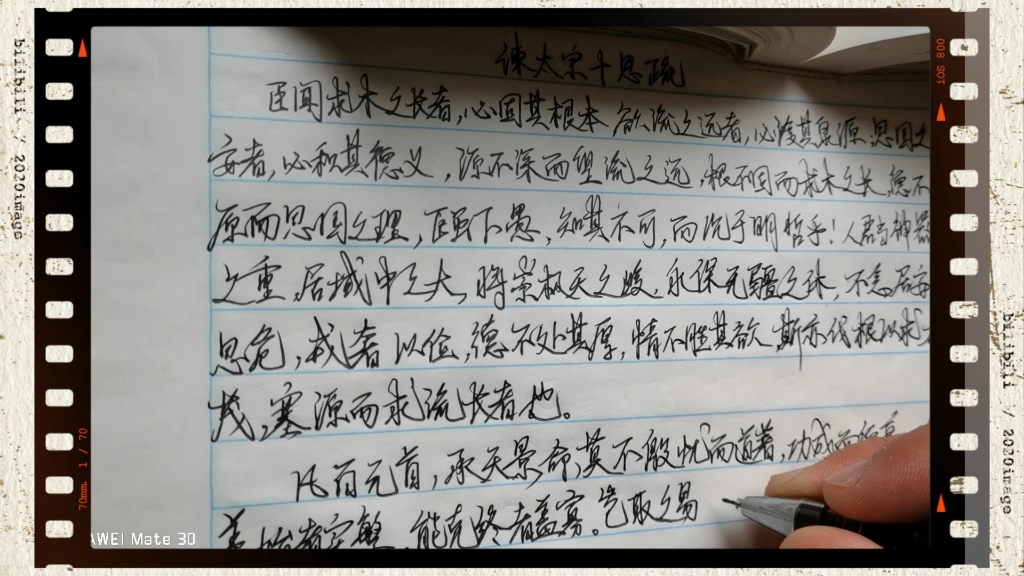 谏太宗十思疏
臣闻求木之长者,必固其根本 欲流之远者,必浚其泉源 思国之
安者,必积其德义,源不深而望流之远,根不固而求木之长,德不
厚而思国之理,臣虽下愚,知其不可,而况于明哲乎!人君当神器
之重,居域中之大,将崇极天之峻,永保无疆之休,不念居安
思危,戒奢以俭,德不处其厚,情不胜其欲,斯亦伐根以求木
茂,塞源而求流长者也。
凡百元首,承天景命,莫不殷忧而道著,功成而德
始者实繁,能克终者盖寡。岂取之易
bilibili / 2020image
bilibili / 2020image
iOS 800
70mm. 1 / 70
AWEI Mate 30